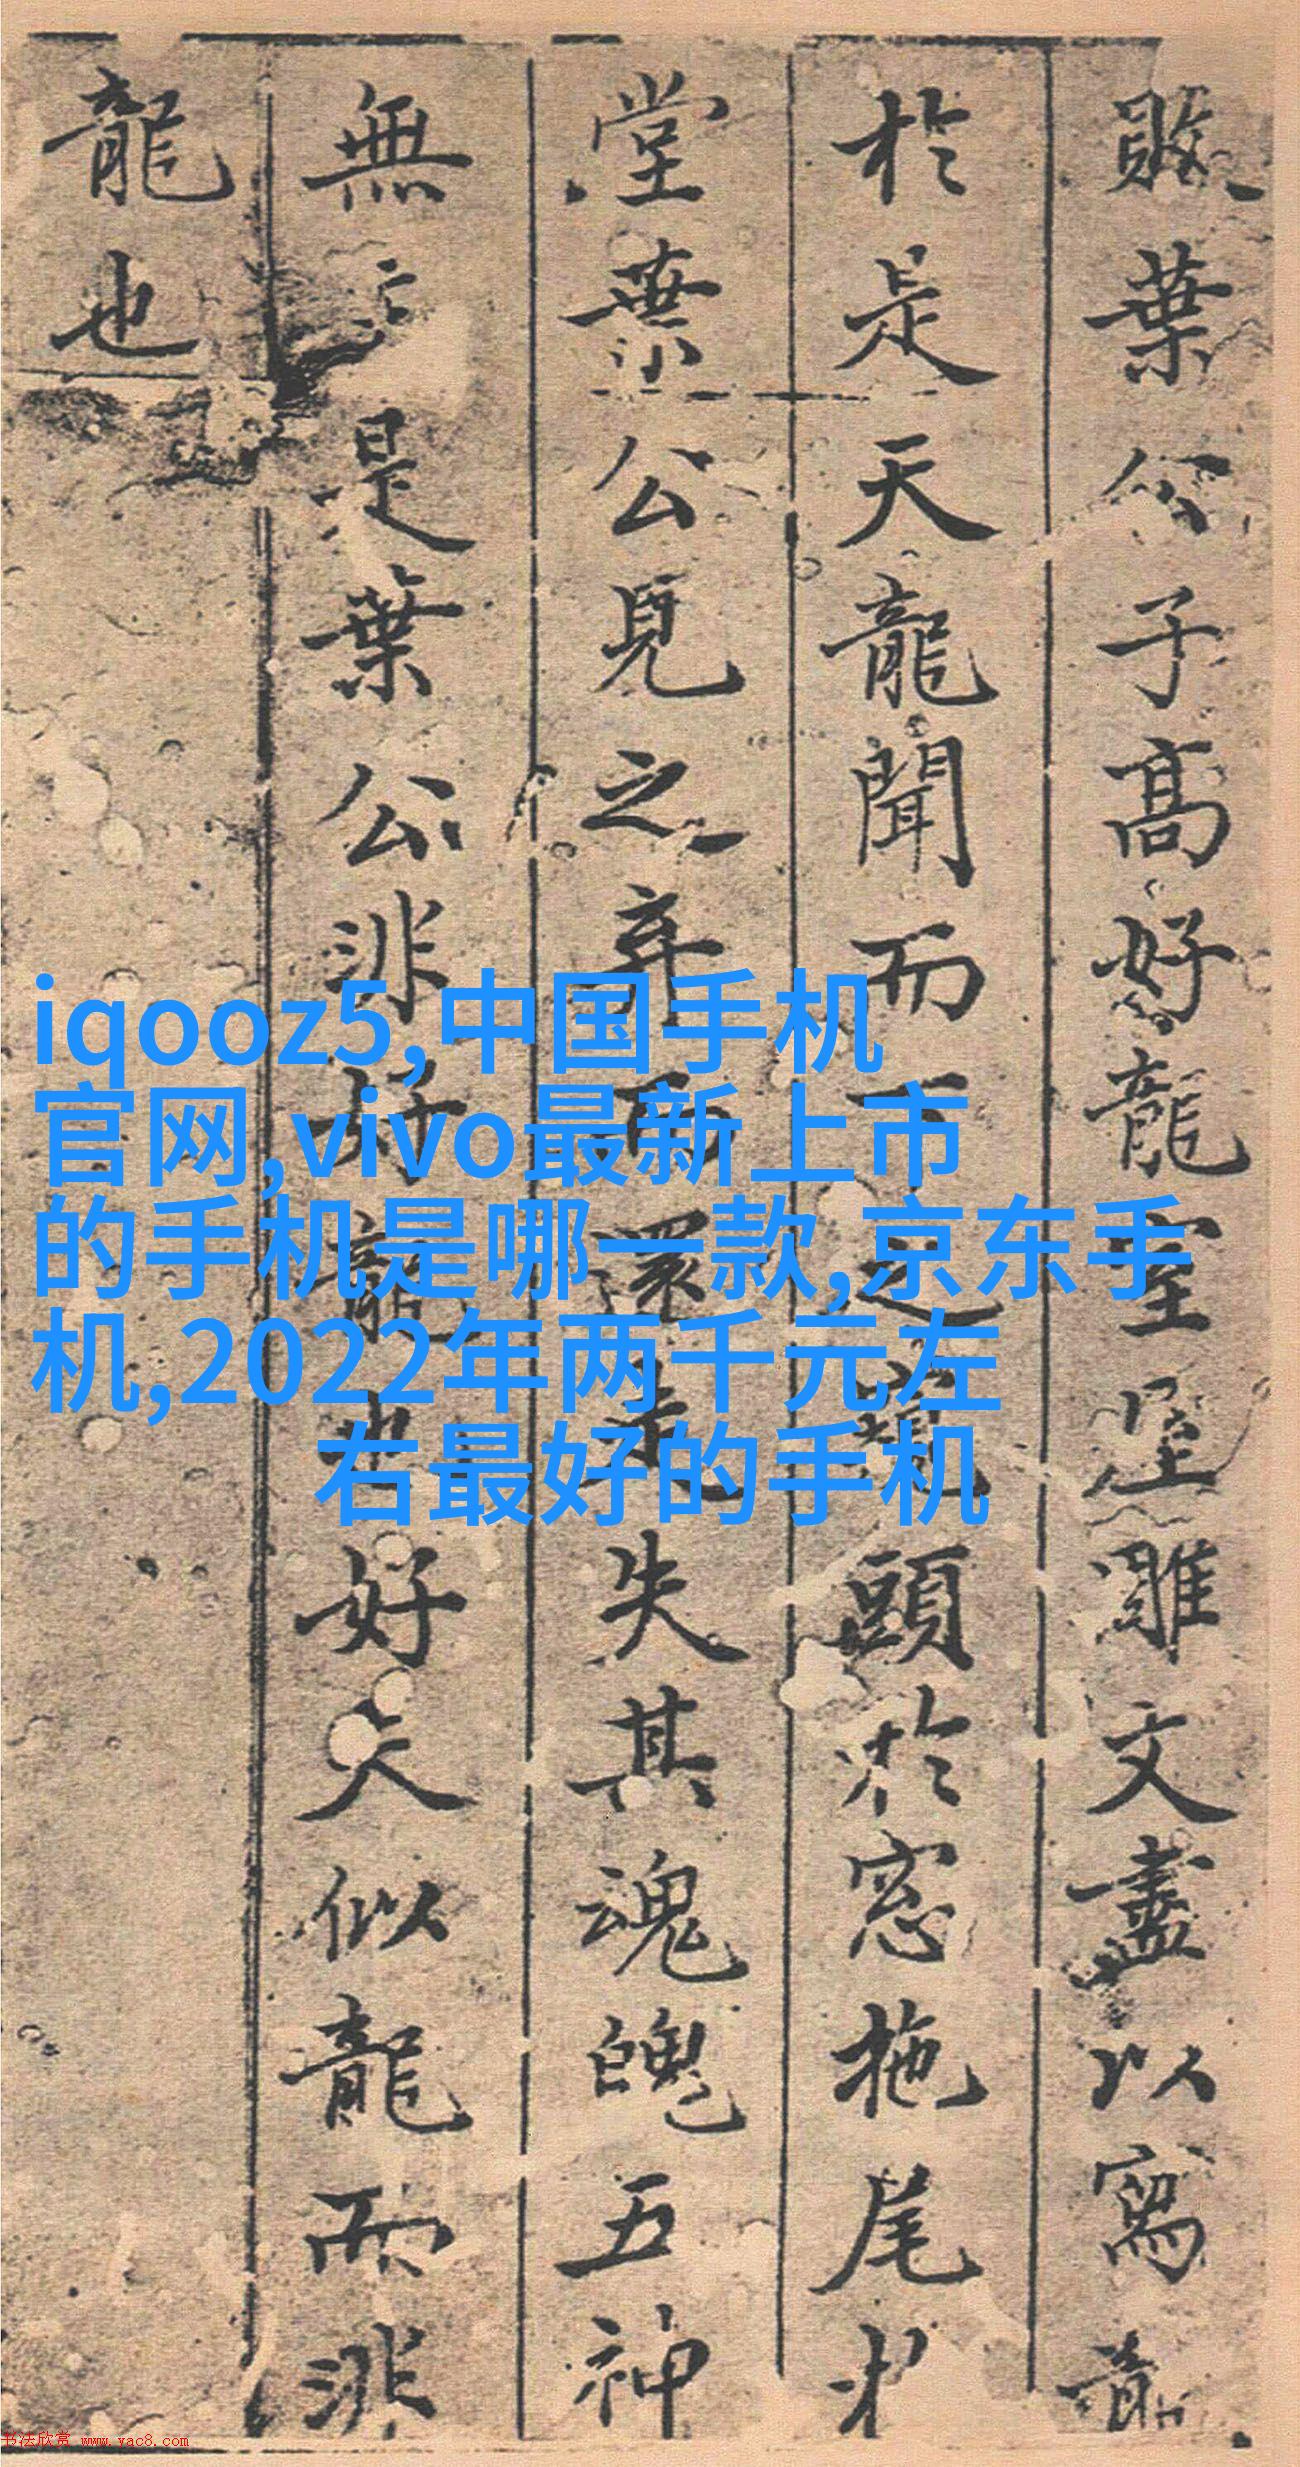 敗葉公子髙好龍室雕文盡以寫龍
於是天龍聞而下之窺頭於窓拖尾
堂葉公見之弃而還走失其魂魄五神
無主是葉公非好龍也好夫似龍而非
龍也
iqooz5,中国手机
官网,vivo最新上市
的手机是哪一款,京东手
机,2022年两千元左
右最好的手机
书法欣赏 www.yac8.com